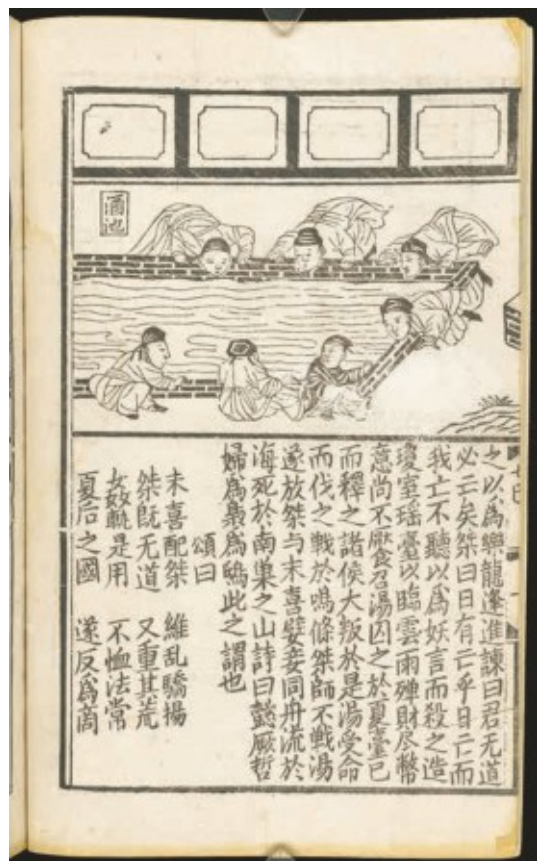 酒池
之以爲樂龍逢進諫曰君无道
必亡矣桀曰日有亡乎日亡而
我亡不聽以爲妖言而殺之造
瓊室瑶臺以臨雲雨殫財尽幣
意尚不饜召湯囚之於夏臺已
而釋之諸侯大叛於是湯受命
而伐之戰於鳴條桀師不戰湯
遂放桀与末喜嬖妾同舟流於
海死於南巢之山詩曰懿厥哲
婦爲梟爲鴟此之謂也
頌曰
末喜配桀 維乱驕揚
桀既无道 又重其荒
姦軌是用 不恤法常
夏后之國 遂反爲商